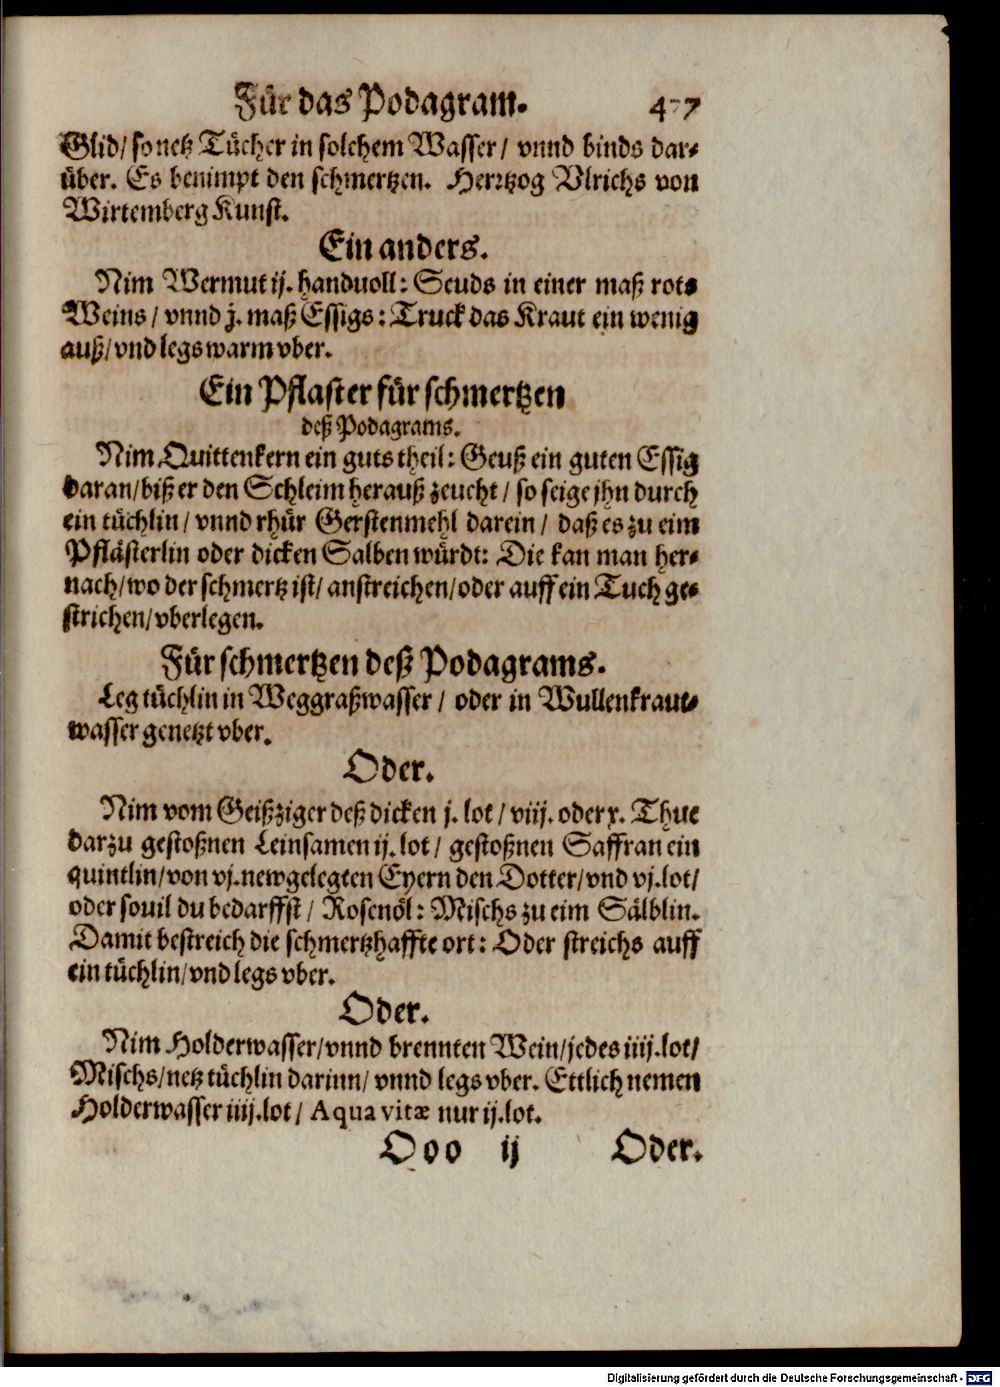 Für das Podagram. 477
Glid/ so netz Tücher in solchem Wasser/ vnnd binds dar-
über. Es benimpt den schmertzen. Hertzog Vlrichs von
Wirtemberg Kunst.
Ein anders.
Nim Wermut ij. handvoll: Seuds in einer maß rots
Weins/ vnnd j. maß Essigs: Truck das Kraut ein wenig
auß/ vnd legs warm vber.
Ein Pflaster für schmertzen
deß Podagrams.
Nim Quittenkern ein guts theil: Geuß ein guten Essig
daran/ biß er den Schleim herauß zeucht/ so seige jhn durch
ein tüchlin/ vnnd rhür Gerstenmehl darein/ daß es zu eim
Pflästerlin oder dicken Salben würdt: Die kan man her-
nach/ wo der schmertz ist/ anstreichen/ oder auff ein Tuch ge-
strichen/ vberlegen.
Für schmertzen deß Podagrams.
Leg tüchlin in Weggraßwasser/ oder in Wullenkraut-
wasser genetzt vber.
Oder.
Nim vom Geißziger deß dicken j. lot/ viij. oder x. Thue
darzu gestoßnen Leinsamen ij. lot/ gestoßnen Saffran ein
quintlin/ von vj. newgelegten Eyern den Dotter/ vnd vj. lot/
oder souil du bedarffst/ Rosenöl: Mischs zu eim Sälblin.
Damit bestreich die schmertzhaffte ort: Oder streichs auff
ein tüchlin/ vnd legs vber.
Oder.
Nim Holderwasser/ vnnd brennten Wein/ jedes iiij. lot/
Mischs/ netz tüchlin darinn/ vnnd legs vber. Ettlich nemen
Holderwasser iiij. lot/ Aqua vitæ nur ij. lot.
Ooo ij Oder.
Digitalisierung gefördert durch die Deutsche Forschungsgemeinschaft - DFG